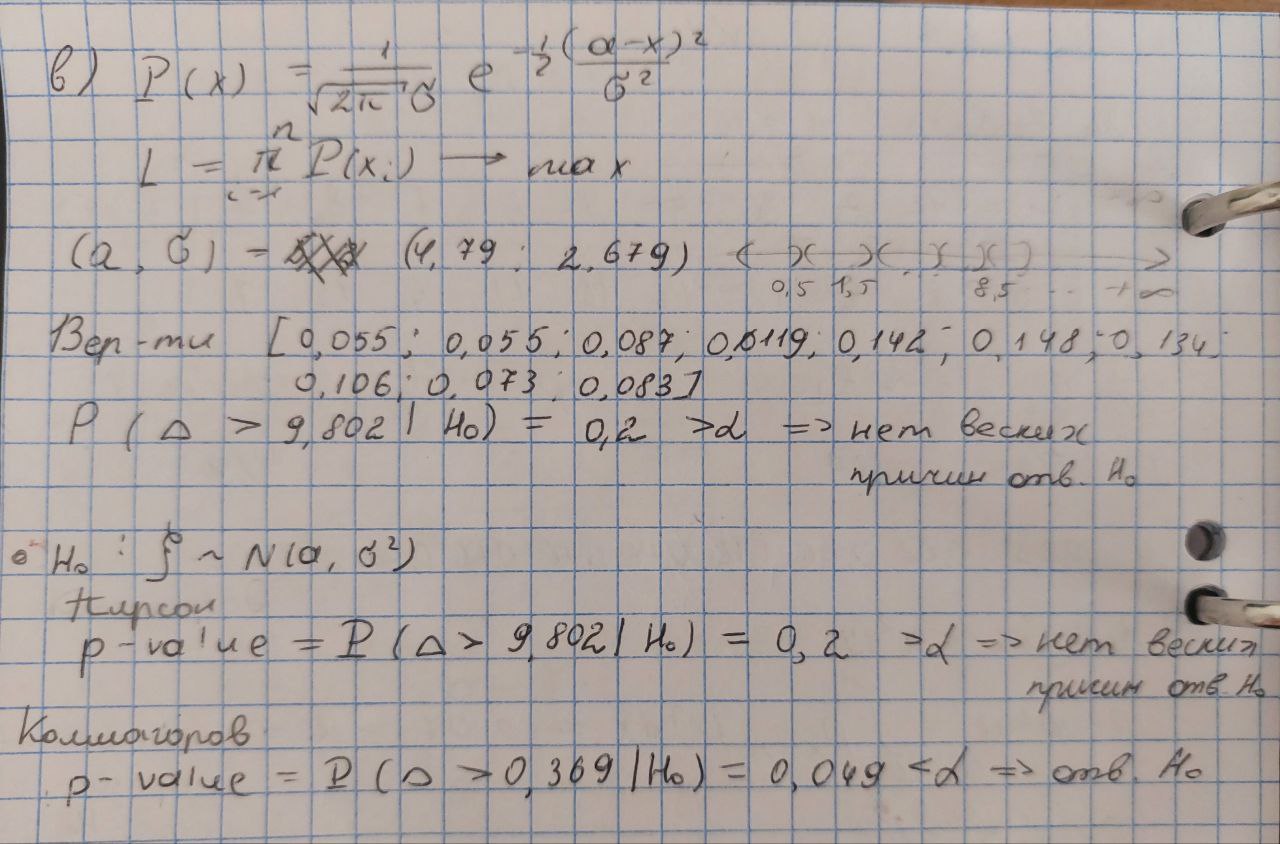 в) P(x) = 1/(√2π σ) e^(-1/2 (a-x)²/σ²)
L = π^n_(i=1) P(x_i) → max
(a, σ) - (4,79 ; 2,679) 0,5 1,5 8,5 ... +∞
Вер-ти [0,055; 0,055; 0,087; 0,0119; 0,142; 0,148; 0,134;
0,106; 0,073; 0,083]
P (Δ > 9,802 | H₀) = 0,2 >α => нет веских
причин отв. H₀
• H₀ : ξ ~ N(a, σ²)
Пирсон
p-value = P (Δ > 9,802 | H₀) = 0,2 >α => нет веских
причин отв. H₀
Колмагоров
p-value = P (Δ > 0,369 | H₀) = 0,049 <α => отв. H₀